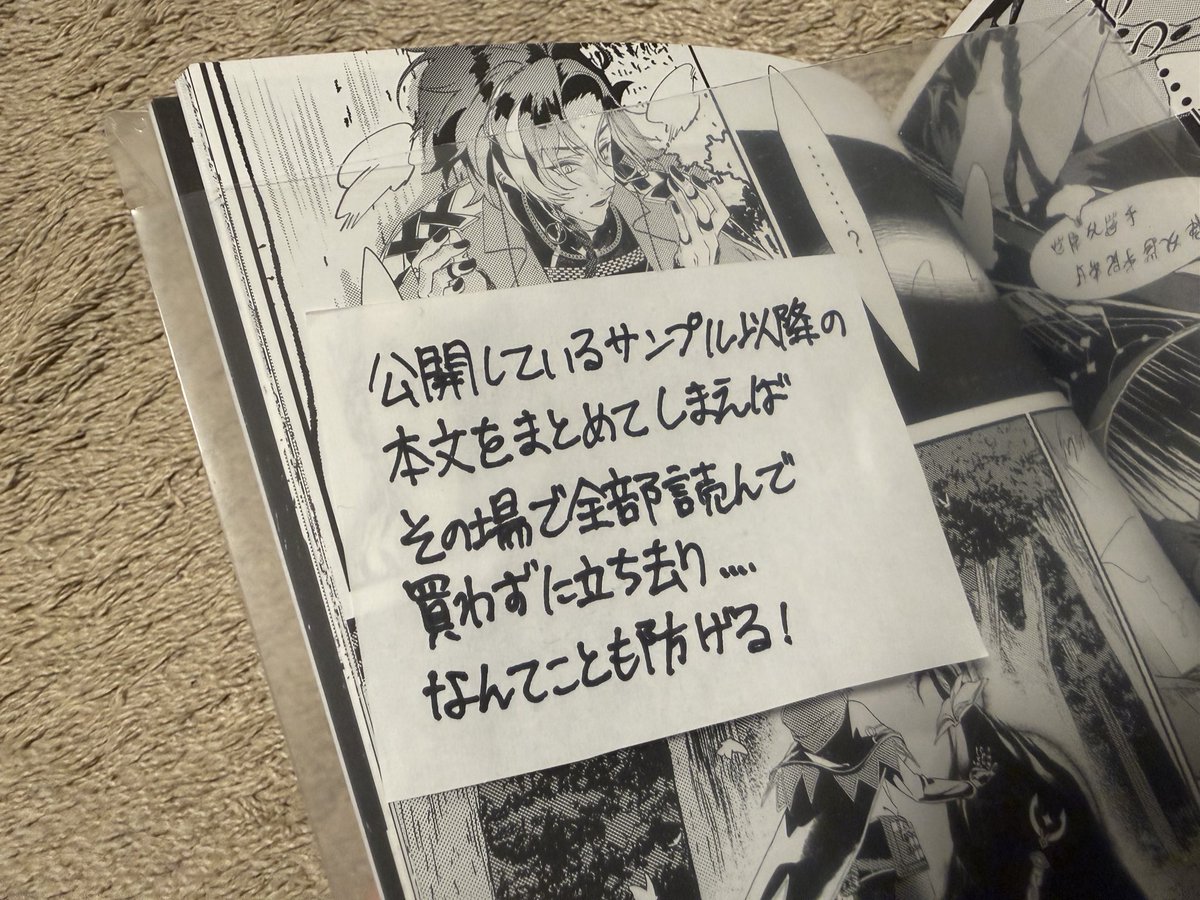 公開しているサンプル以降の
本文をまとめてしまえば
その場で全部読んで
買わずに立ち去り....
なんてことも防げる!
………?